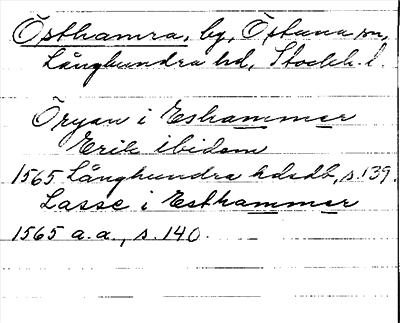 Östhamra, by, Östuna sn,
Långhundra hd, Stockh. l.
Öryan i Eshammar
Erik ibidem
1565 Långhundra hdsdb, s. 139.
Lasse i Esthammar
1565 a.a., s. 140.